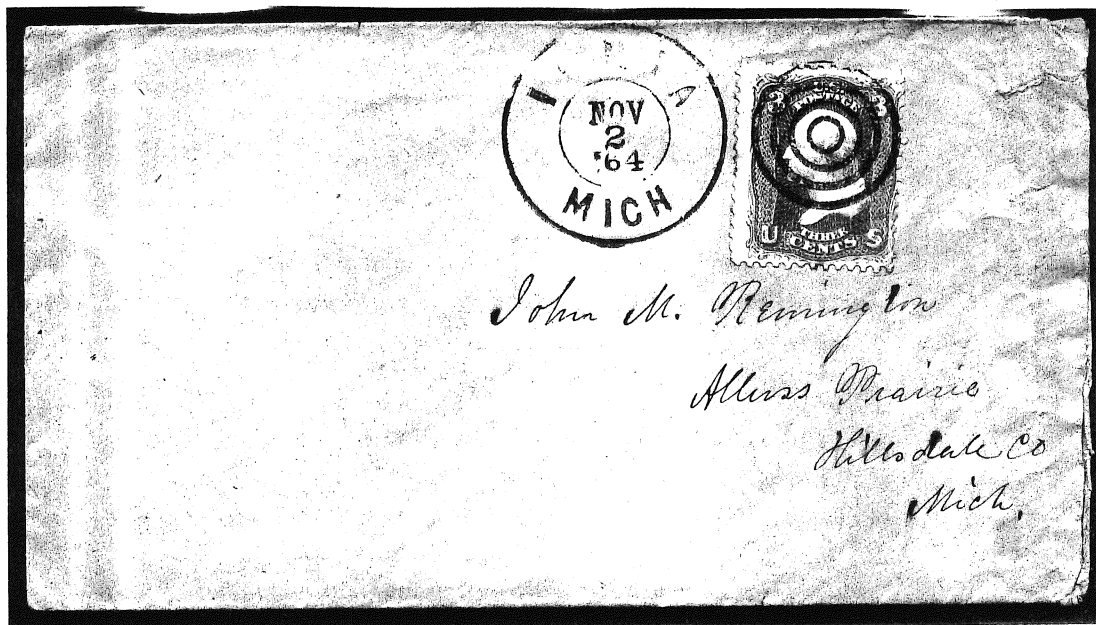 IONIA
NOV
2
'64
MICH
U.S. POSTAGE
3 3
U THREE CENTS S
John M. Remington
Allens Prairie
Hillsdale Co
Mich.